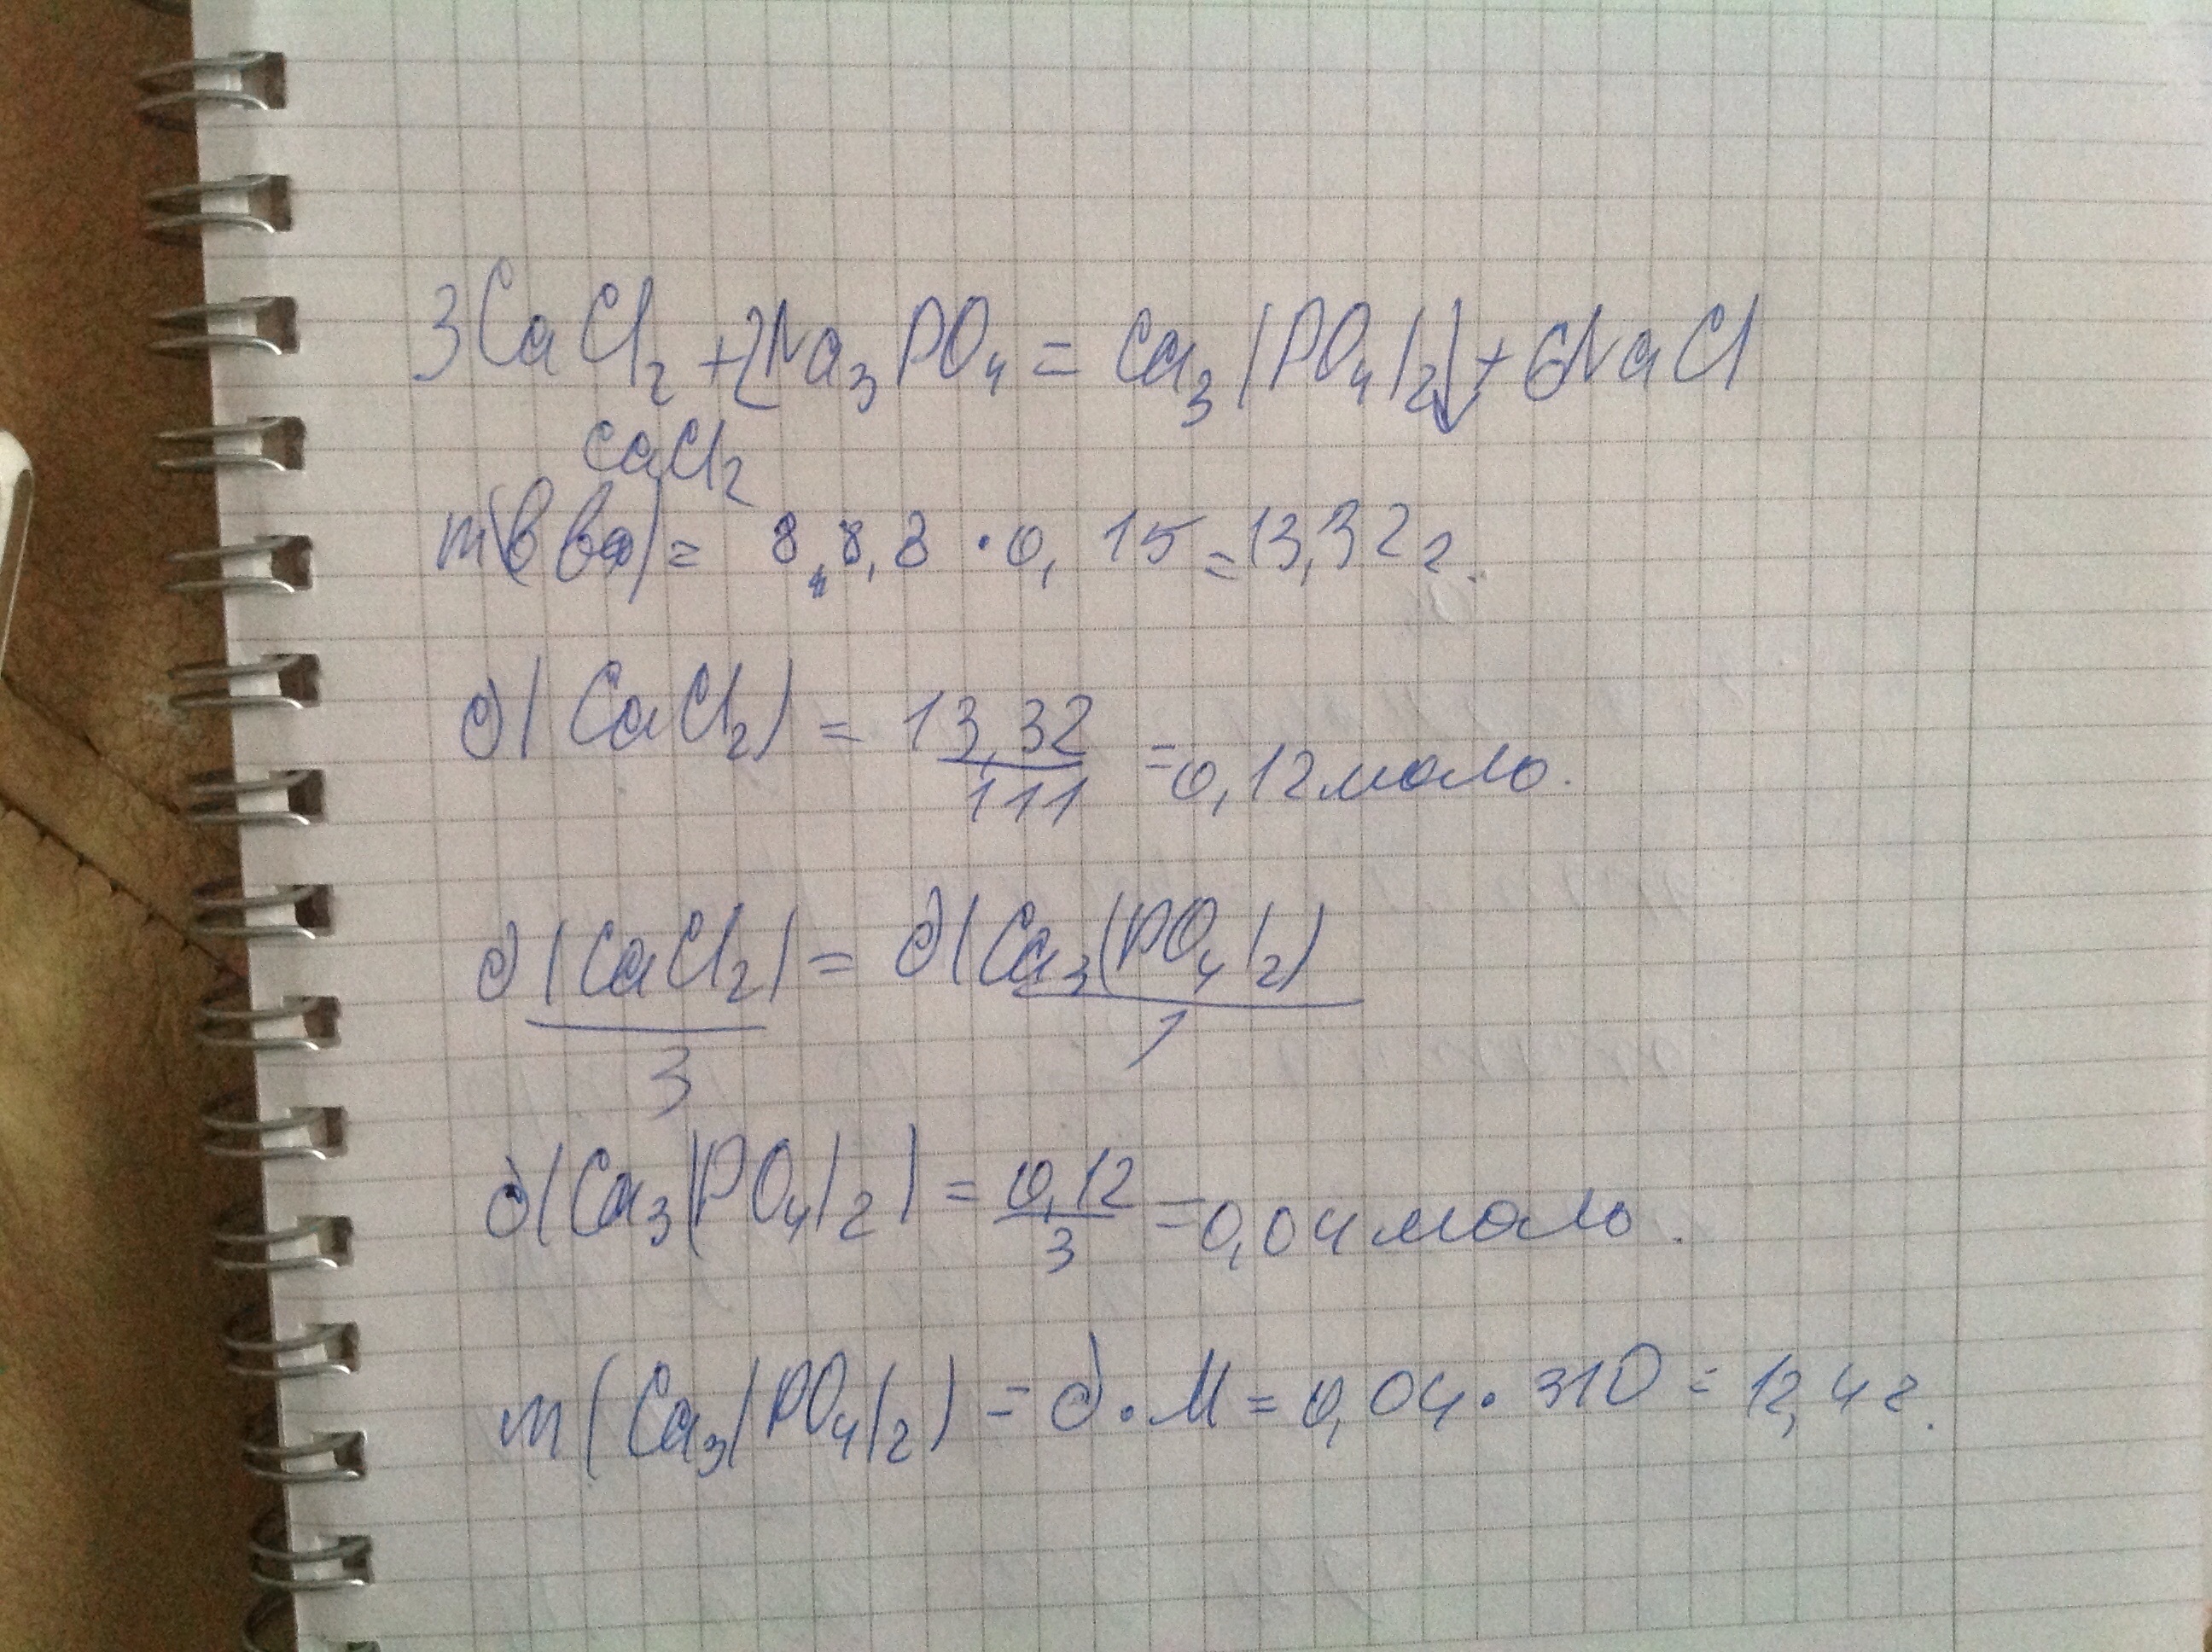 3CaCl₂ + 2Na₃PO₄ = Ca₃(PO₄)₂↓ + 6NaCl
CaCl₂
m(в ва) = 8,8,8 · 0,15 = 13,32 г.
∂(CaCl₂) = 13,32/111 = 0,12 моль.
∂(CaCl₂)/3 = ∂(Ca₃(PO₄)₂)/1
∂(Ca₃(PO₄)₂) = 0,12/3 = 0,04 моль.
m(Ca₃(PO₄)₂) = ∂ · M = 0,04 · 310 = 12,4 г.